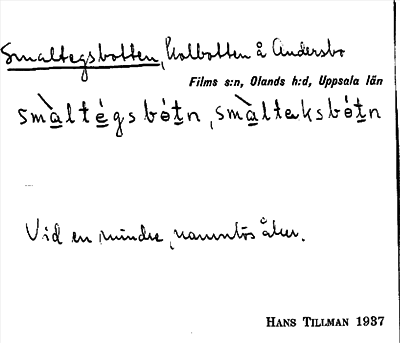 Smaltegsbotten, Kolbotten å Andersbo
Films s:n, Olands h:d, Uppsala län
smàltégsbótn, smàltaksbótn
Vid en mindre, namnlös åker.
HANS TILLMAN 1937